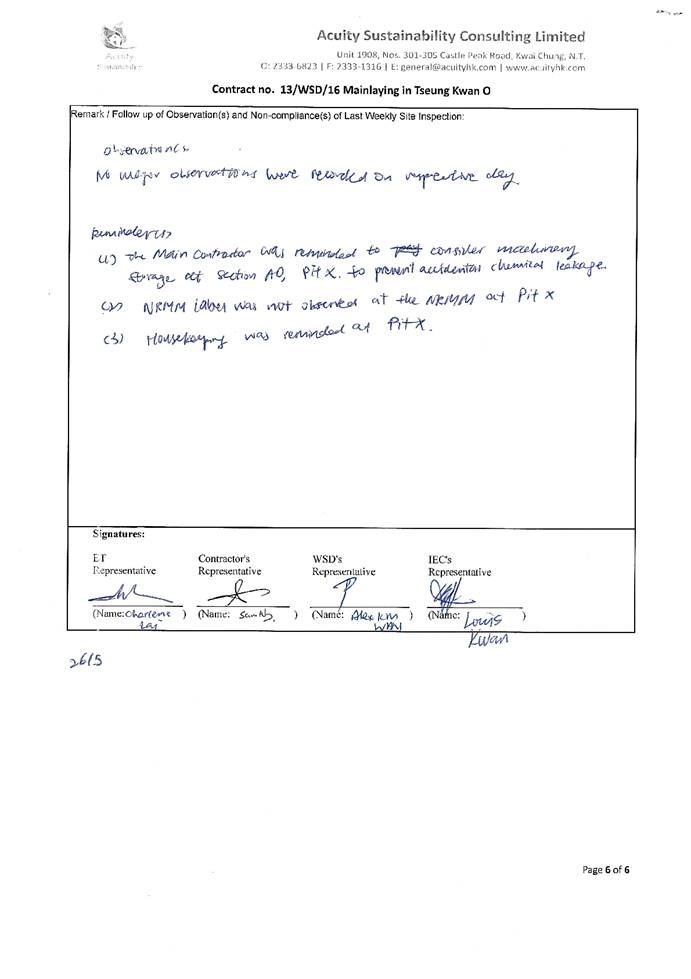 Acuity
Acuity Sustainability Consulting Limited
Unit 1908, Nos. 301-305 Castle Peak Road, Kwai Chung, N.T.
O: 2333-6823 | F: 2333-1316 | E: general@acuityhk.com | www.acuityhk.com
Contract no. 13/WSD/16 Mainlaying in Tseung Kwan O
Remark / Follow up of Observation(s) and Non-compliance(s) of Last Weekly Site Inspection:
Observations
No major observations were recorded on respective day.
Reminder(s)
(1) The Main Contractor was reminded to consider machinery
storage at Section A0, Pit X. to prevent accidental chemical leakage.
(2) NRMM label was not observed at the NRMM at Pit X
(3) Housekeeping was reminded at Pit X.
Signatures:
ET Representative
Contractor's Representative
WSD's Representative
IEC's Representative
(Name: Charlene Lai )
(Name: Sam Ng )
(Name: Alex KM WAN )
(Name: Louis Kwan )
26/5
Page 6 of 6